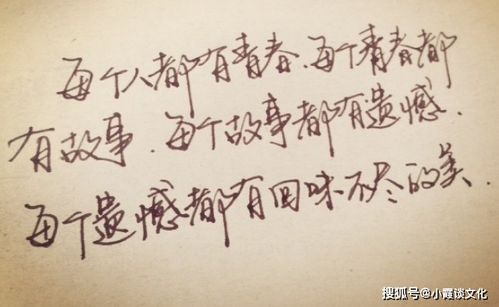 每个人都有青春.每个青春都
有故事.每个故事都有遗憾.
每个遗憾都有回味不尽的美.
搜狐号@小霞谈文化